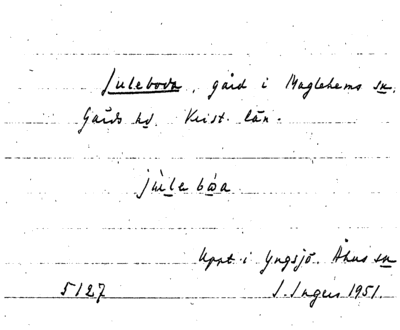 Juleboda, gård i Maglehems sn.
Gärds hd. Krist. län.
jùle bòa
Uppt. i Yngsjö. Åhus sn
5127 S. Ingers 1951.